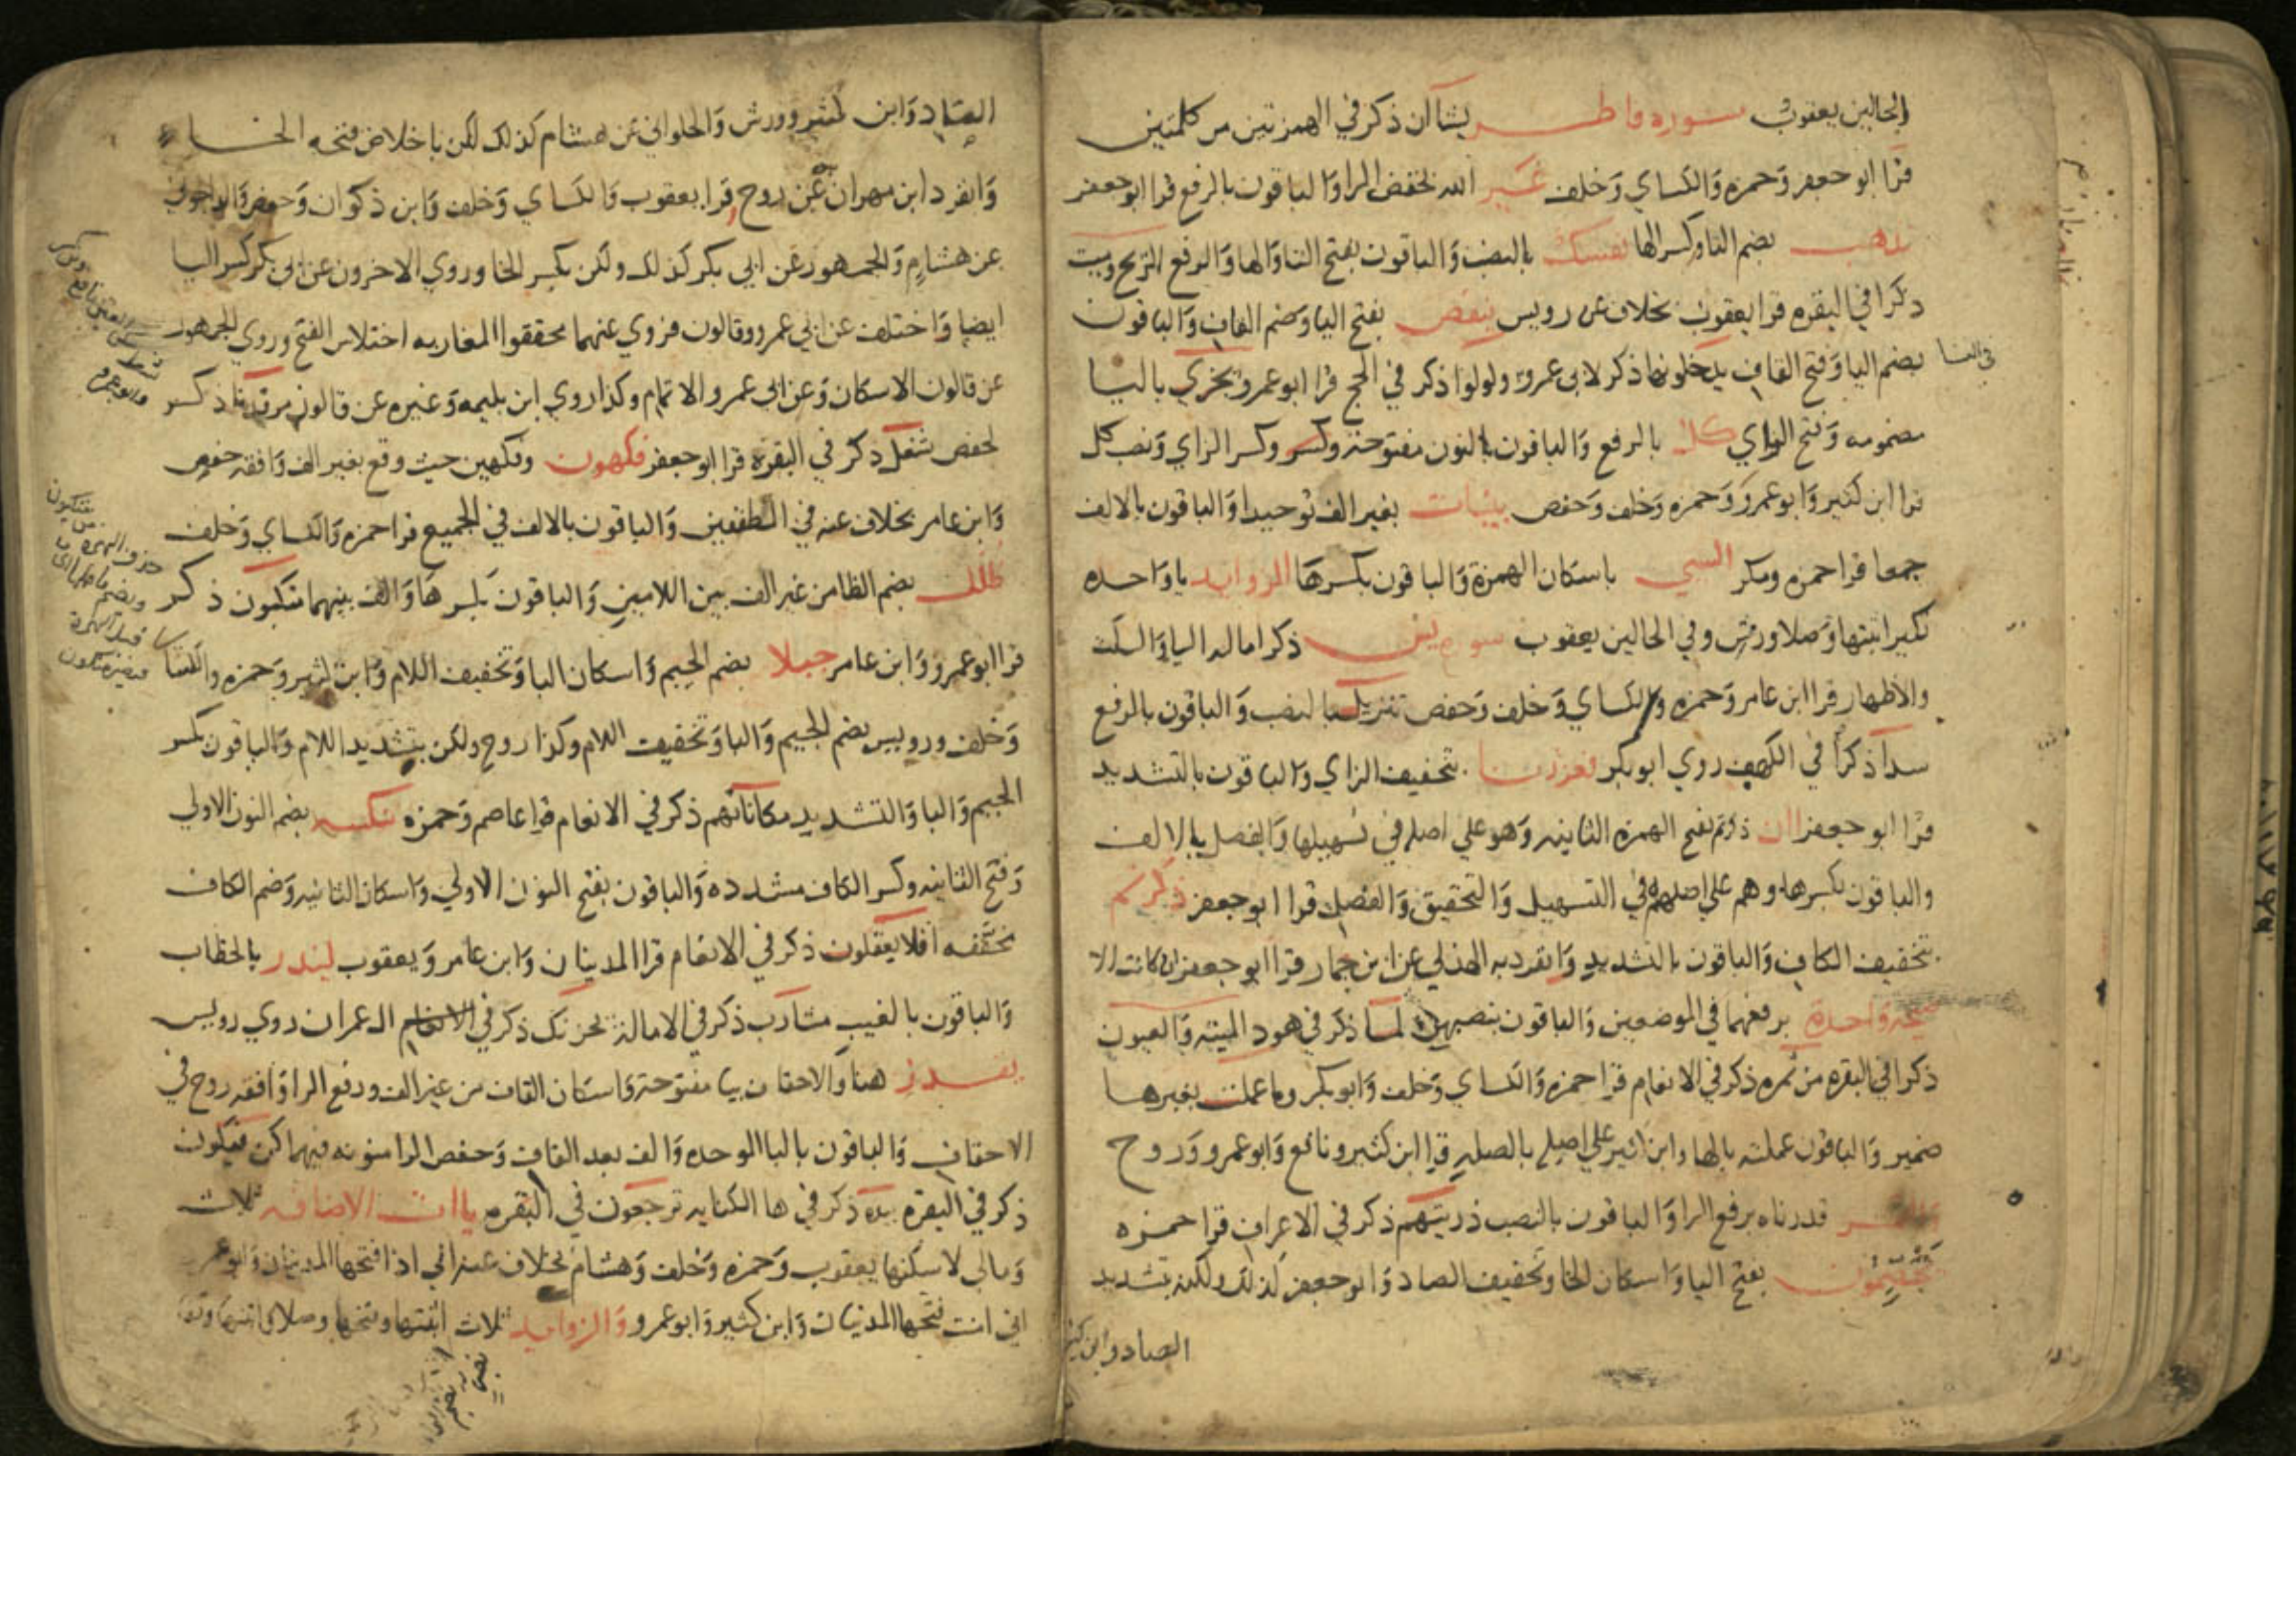 الحالين يعقوب سورة فاطر يشآ ان ذكر في الهمزتين من كلمتين
قرا ابو جعفر وحمزه والكساي وخلف غير الله بخفض الرا والباقون بالرفع قرا ابو جعفر
تذهب بضم التا وكسر الها نفسك بالنصب والباقون بفتح التا والها والرفع الريح وميت
ذكرا في البقره قرا يعقوب بخلاف عن رويس ينقص بفتح اليا وضم القاف والباقون
بضم اليا وفتح القاف يدخلونها ذكر لابي عمرو ولولوا ذكر في الحج قرا ابو عمرو يجزي باليا
في النسا
مضمومه وفتح الزاي كل بالرفع والباقون بالنون مفتوحة وكسر الزاي ونصب كل
قرا ابن كثير وابو عمرو وحمزه وخلف وحفص بينات بغير الف توحيدا والباقون بالالف
جمعا قرا حمزه ومكر السي باسكان الهمزة والباقون بكسرها الزوايد يا واحده
نكير اثبتها وصلا ورش وفي الحالين يعقوب سورة يس ذكر اماله اليا والسكت
والاظهار قرا ابن عامر وحمزه والكساي وخلف وحفص تنزيل بالنصب والباقون بالرفع
سدا ذكرا في الكهف روي ابو بكر فعززنا بتخفيف الزاي والباقون بالتشديد
قرا ابو جعفر اان ذكرتم بفتح الهمزه الثانيه وهو علي اصله في تسهيلها والفصل بالالف
والباقون بكسرها وهم علي اصلهم في التسهيل والتحقيق والفصل قرا ابو جعفر ذكرتم
بتخفيف الكاف والباقون بالتشديد وانفرد به الهذلي عن ابن جمار قرا ابو جعفر ان كانت الا
صيحة واحدة برفعهما في الموضعين والباقون بنصبهن لما ذكر في هود الميته والعيون
ذكرا في البقره من ثمره ذكر في الانعام قرا حمزه والكساي وخلف وابو بكر وما عملت بغير ها
ضمير والباقون عملته بالها وابن كثير علي اصله بالصله قرا ابن كثير ونافع وابو عمرو وروح
والقمر قدرناه برفع الرا والباقون بالنصب ذريتهم ذكر في الاعراف قرا حمزه
يخصمون بفتح اليا واسكان الخا وتخفيف الصاد وابو جعفر كذلك ولكنه بتشديد
الصاد وابن كثير
الصاد وابن كثير وورش والحلواني عن هشام كذلك لكن باخلاص فتحه الخا
وانفرد ابن مهران عن روح قرا يعقوب والكساي وخلف وابن ذكوان وحفص والداجوني
عن هشام والجمهور عن ابي بكر كذلك ولكن بكسر الخا وروي الاخرون عن ابي بكر كسر اليا
ايضا واختلف عن ابي عمرو وقالون فروي عنهما محققوا المغاربه اختلاس الفتح وروي الجمهور
عن قالون الاسكان وعن ابي عمرو الاتمام وكذا روي ابن بليمه وغيره عن قالون مرقدنا ذكر
لحفص شغل ذكر في البقرة قرا ابو جعفر فكهون وفكهين حيث وقع بغير الف وافقه حفص
وابن عامر بخلاف عنه في المطففين والباقون بالالف في الجميع قرا حمزه والكساي وخلف
ظلل بضم الظا من غير الف بين اللامين والباقون بكسرها والف بينهما متكيون ذكر
قرا ابو عمرو وابن عامر جبلا بضم الجيم واسكان البا وتخفيف اللام وابن كثير وحمزه والكسا
وخلف ورويس بضم الجيم والبا وتخفيف اللام وكذا روح ولكن بتشديد اللام والباقون بكسر
الجيم والبا والتشديد مكاناتهم ذكر في الانعام قرا عاصم وحمزه ننكسه بضم النون الاولي
وفتح الثانيه وكسر الكاف مشدده والباقون بفتح النون الاولي واسكان الثانيه وضم الكاف
مخففه افلا يعقلون ذكر في الانعام قرا المدنيان وابن عامر ويعقوب لينذر بالخطاب
والباقون بالغيب مشارب ذكر في الامالة يحزنك ذكر في الانعام ال عمران روي رويس
يقدر هنا والاحقاف بيا مفتوحة واسكان القاف من غير الف ورفع الرا وافقه روح في
الاحقاف والباقون بالبا الموحده والف بعد القاف وخفض الرا منونه فيهما كن فيكون
ذكر في البقره بيده ذكر في ها الكنايه ترجعون في البقره ياات الاضافه ثلاث
ومالي لا سكنها يعقوب وحمزه وخلف وهشام بخلاف عنه اني اذا فتحها المدنيان وابو عمرو
اني امنت فتحها المدنيان وابن كثير وابو عمرو والزوايد ثلاث